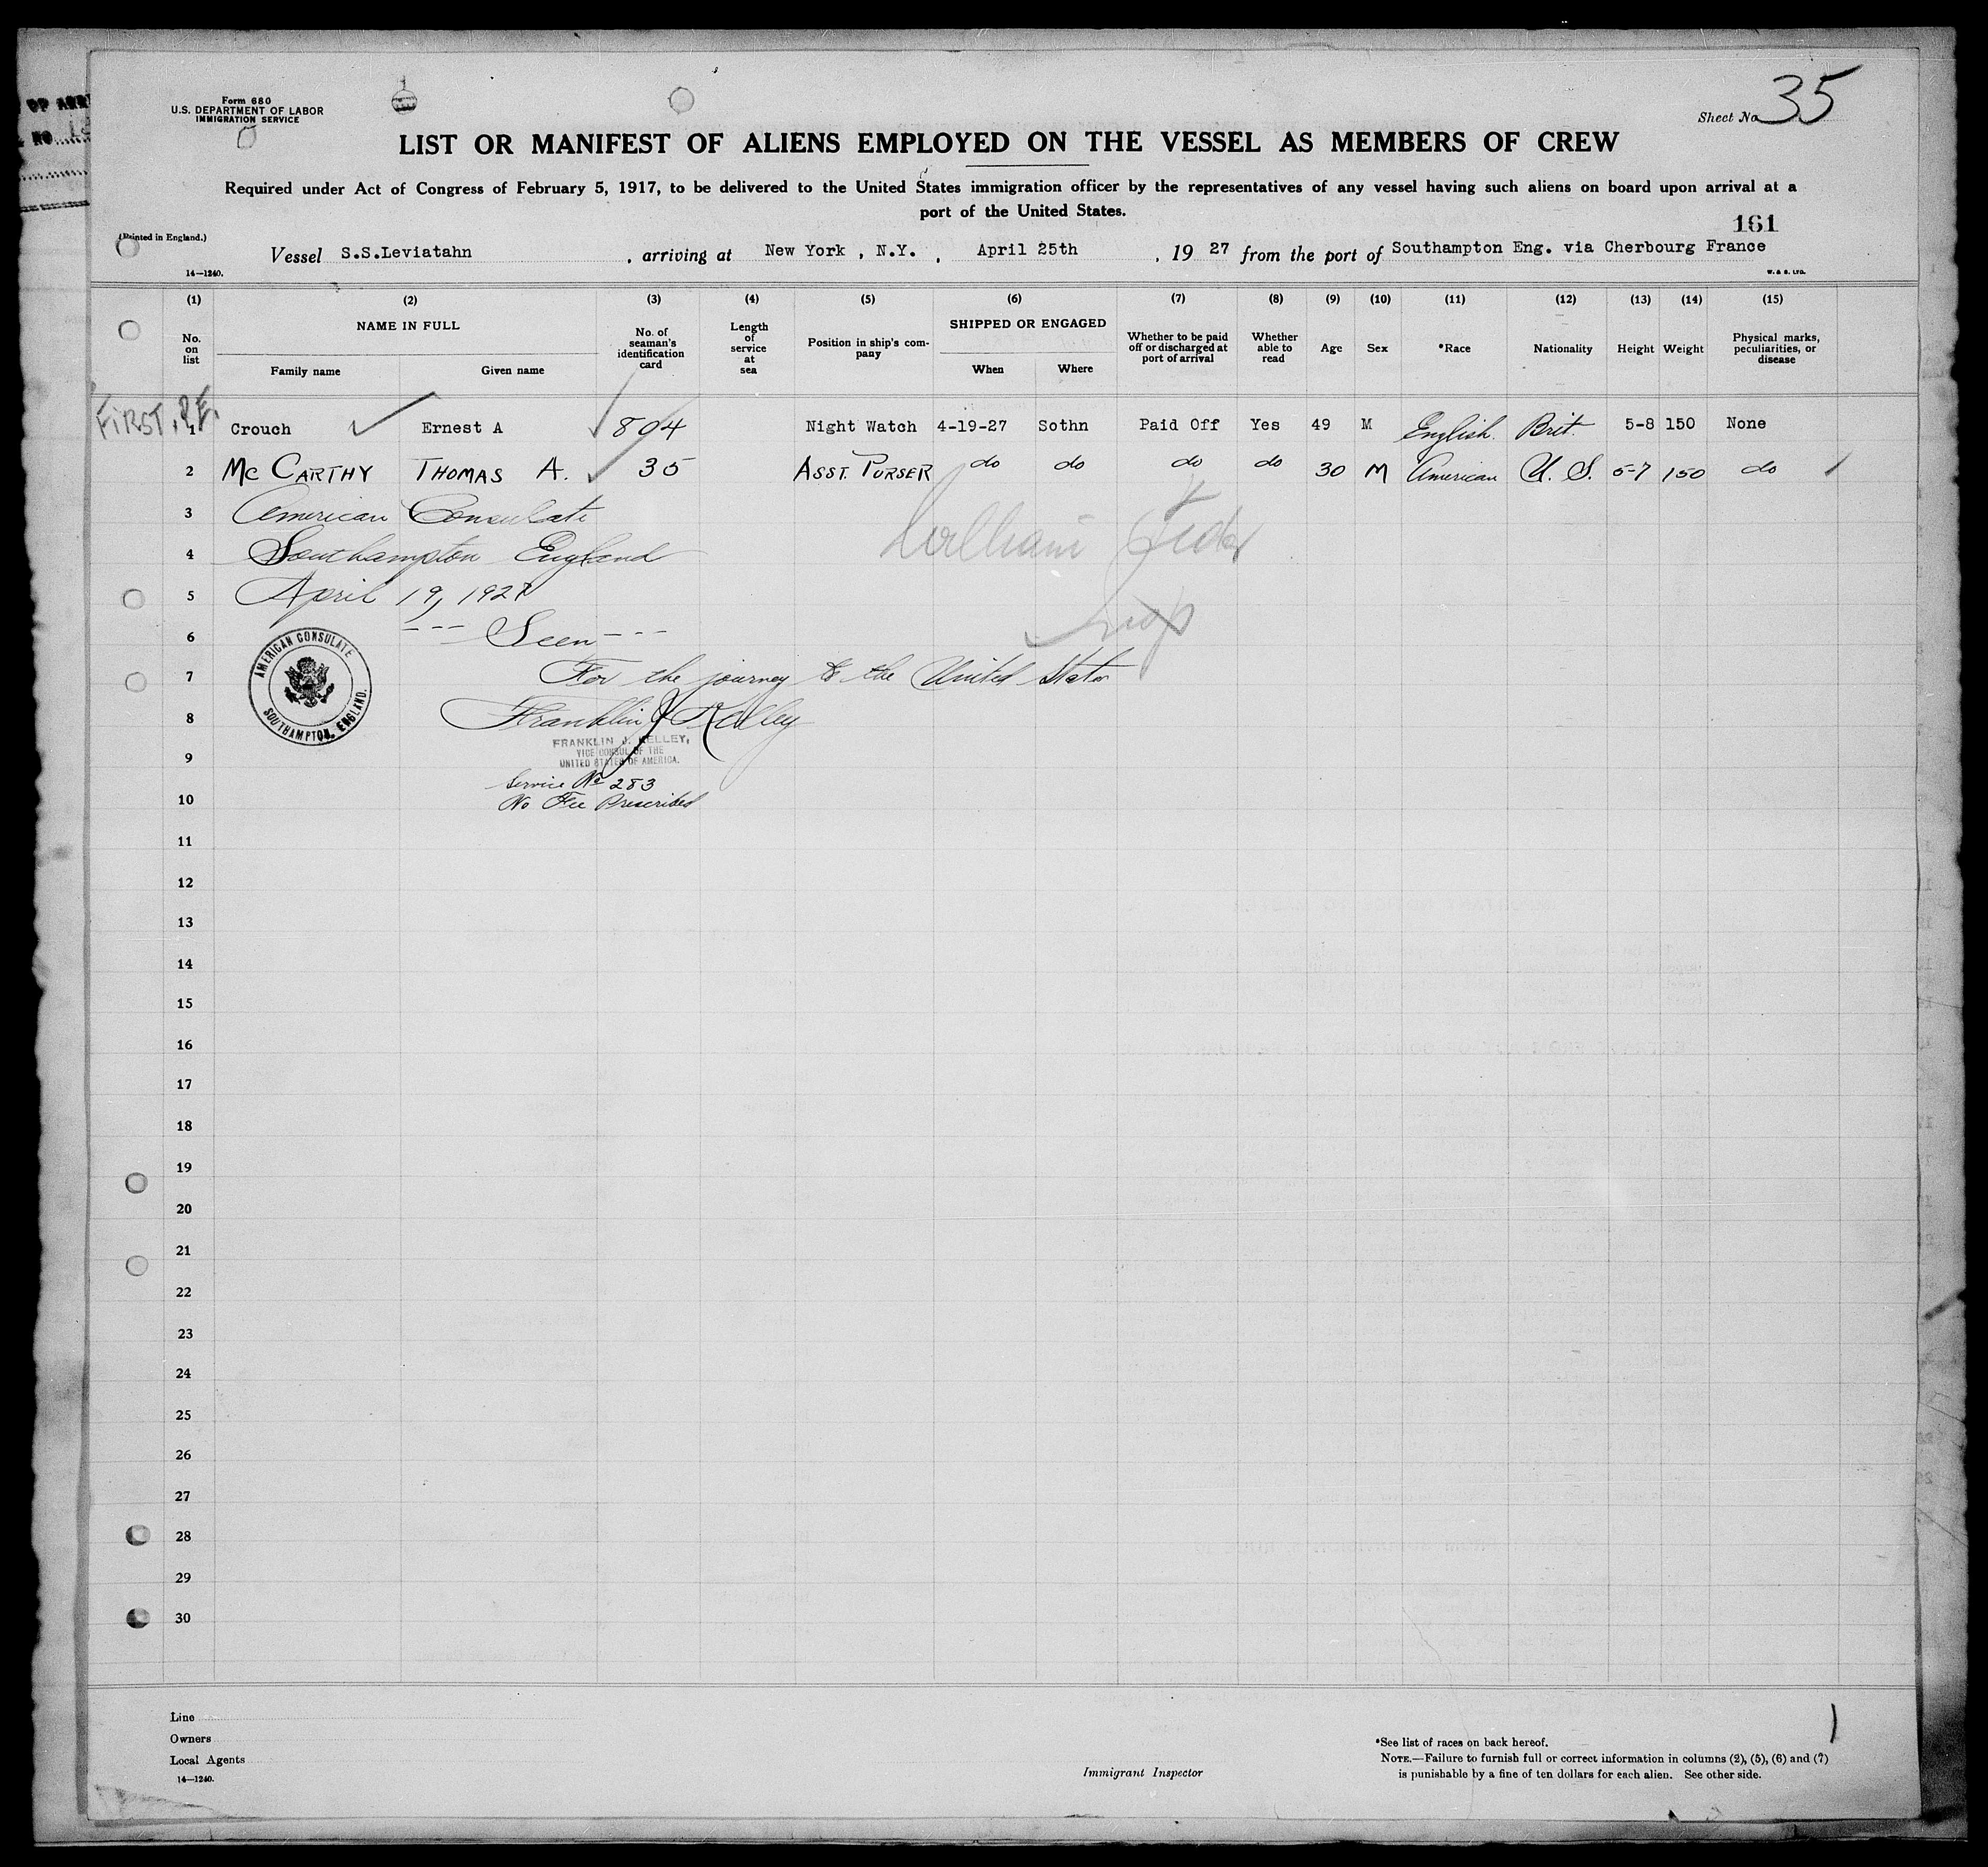 Form 680
U.S. DEPARTMENT OF LABOR
IMMIGRATION SERVICE
Sheet No. 35
LIST OR MANIFEST OF ALIENS EMPLOYED ON THE VESSEL AS MEMBERS OF CREW
Required under Act of Congress of February 5, 1917, to be delivered to the United States immigration officer by the representatives of any vessel having such aliens on board upon arrival at a
port of the United States.
161
(Printed in England.)
Vessel S.S.Leviatahn , arriving at New York , N.Y. , April 25th , 19 27 from the port of Southampton Eng. via Cherbourg France
14—1240.
W. & S. LTD.
(1) (2) (3) (4) (5) (6) (7) (8) (9) (10) (11) (12) (13) (14) (15)
No. on list NAME IN FULL Family name Given name No. of seaman's identification card Length of service at sea Position in ship's company SHIPPED OR ENGAGED When Where Whether to be paid off or discharged at port of arrival Whether able to read Age Sex *Race Nationality Height Weight Physical marks, peculiarities, or disease
FIRST. P.F.
1 Crouch Ernest A 804 Night Watch 4-19-27 Sothn Paid Off Yes 49 M English. Brit. 5-8 150 None
2 Mc CARTHY THOMAS A. 35 ASST. PURSER do do do do 30 M American U. S. 5-7 150 do
3 American Consulate
4 Southampton England
5 April 19, 1927
6 --- Seen ---
7 For the journey to the United States
8 Franklin J Kelley
AMERICAN CONSULATE
SOUTHAMPTON, ENGLAND.
FRANKLIN J. KELLEY,
VICE CONSUL OF THE
UNITED STATES OF AMERICA.
9
Service No 283
10 No Fee Prescribed
William
11
12
13
14
15
16
17
18
19
20
21
22
23
24
25
26
27
28
29
30
Line
Owners
Local Agents
14—1240.
Immigrant Inspector
*See list of races on back hereof.
NOTE.—Failure to furnish full or correct information in columns (2), (5), (6) and (7)
is punishable by a fine of ten dollars for each alien. See other side.